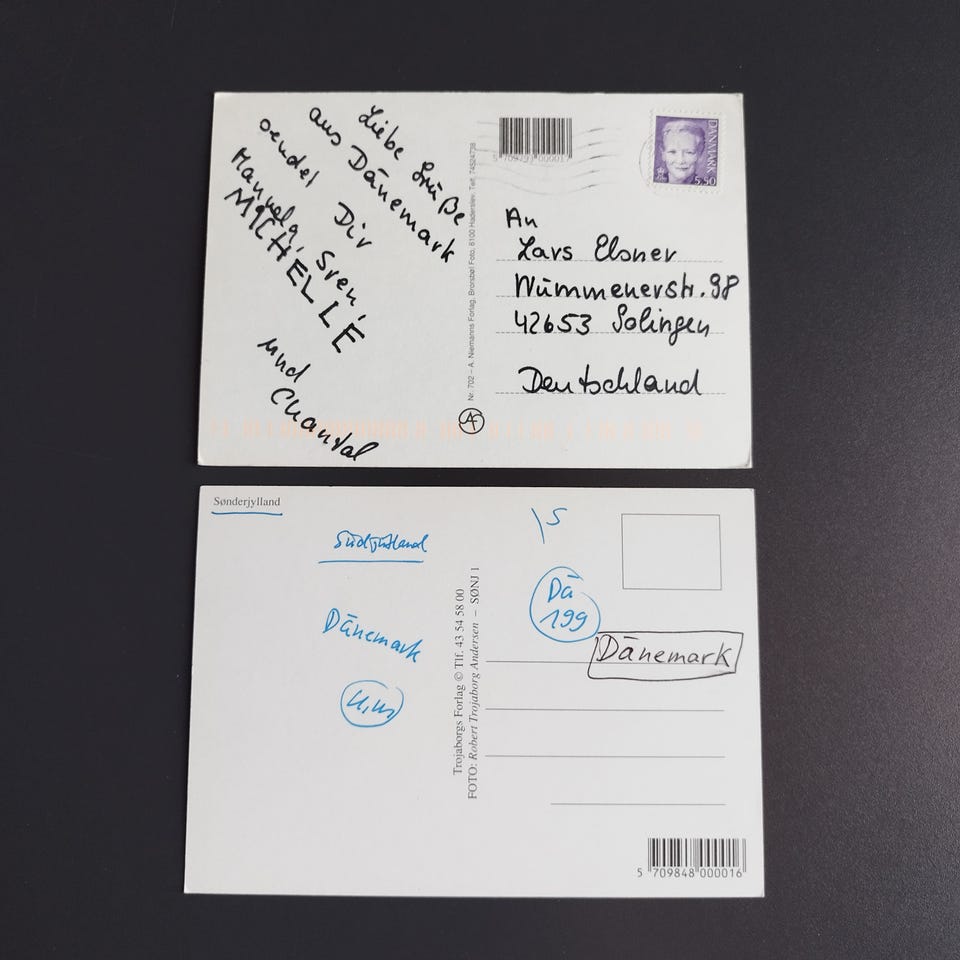 Liebe Grüße
aus Dänemark
sendet Dir
Manuela, Sven,
MICHELLE
und
Chantal
Nr. 702 – A. Niemanns Forlag, Bronsbøl Foto, 6100 Haderslev. Telf. 74524738
DANMARK
5.50
An
Lars Elsner
Wümmenerstr. 98
42653 Solingen
Deutschland
Sønderjylland
Südjütland
Dänemark
Trojaborgs Forlag © Tlf. 43 54 58 00
FOTO: Robert Trojaborg Andersen – SØNJ 1
Dä
199
Dänemark
5 709848 000016